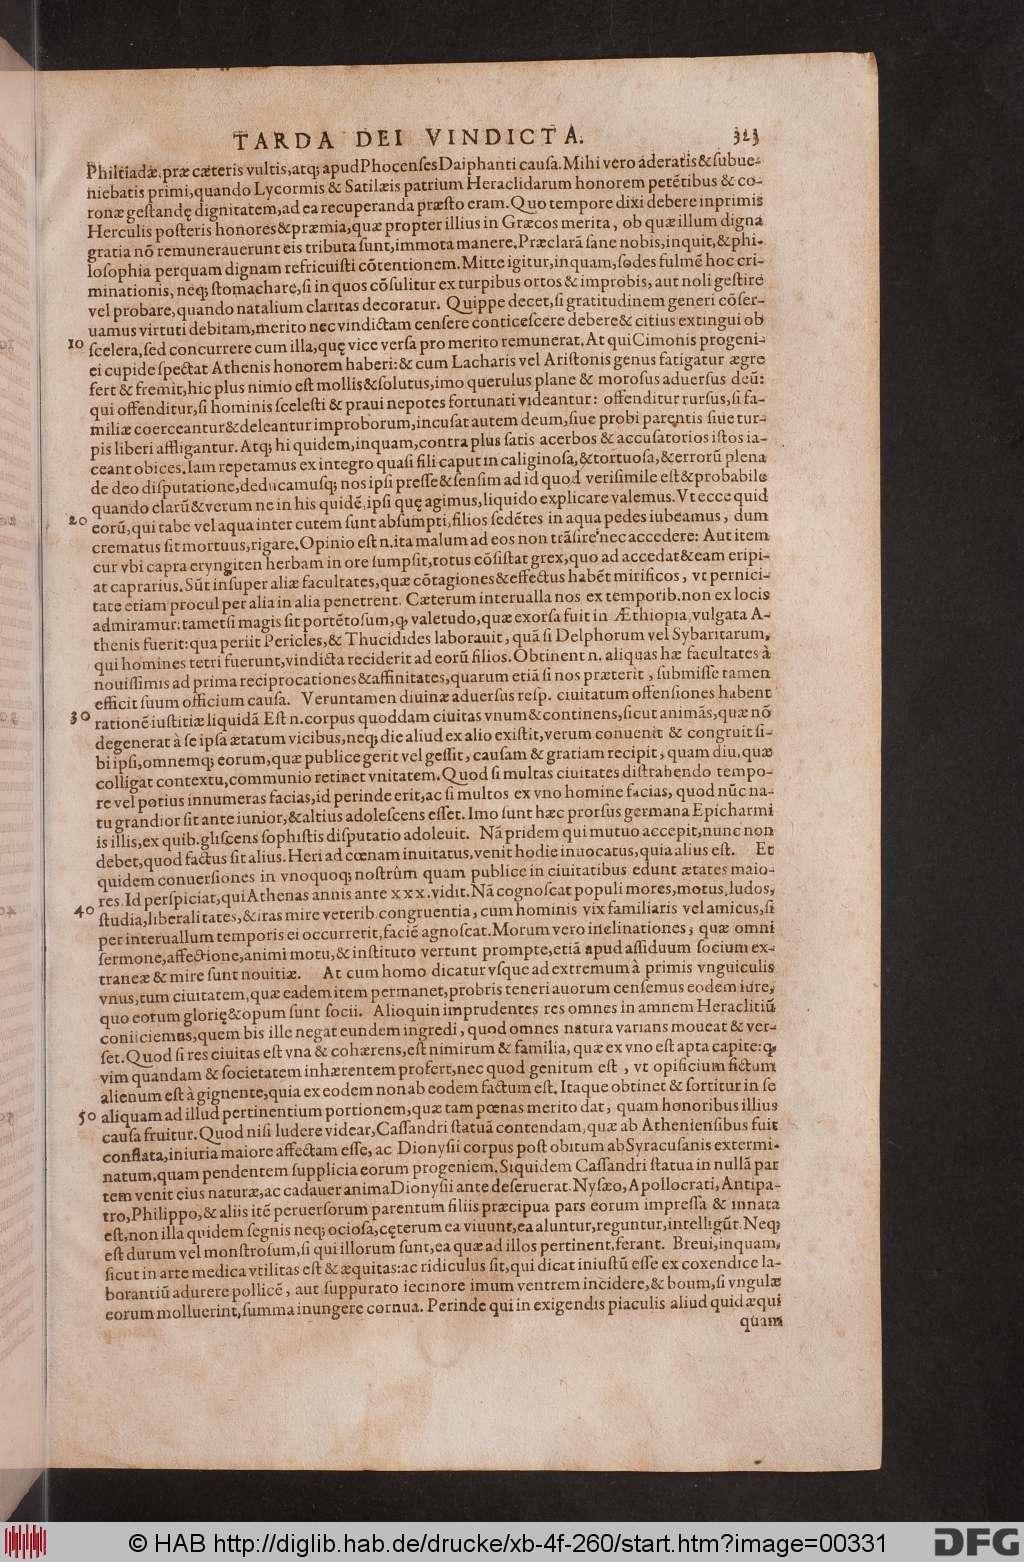 TARDA DEI VINDICTA. 323
Philtiadæ, præ cæteris vultis, atq; apud Phocenses Daiphanti causa. Mihi vero aderatis & subue-
niebatis primi, quando Lycormis & Satilæis patrium Heraclidarum honorem petētibus & co-
ronæ gestandę dignitatem, ad ea recuperanda præsto eram. Quo tempore dixi debere inprimis
Herculis posteris honores & præmia, quæ propter illius in Græcos merita, ob quæ illum digna
gratia nō remunerauerunt eis tributa sunt, immota manere. Præclarā sane nobis, inquit, & phi-
losophia perquam dignam refricuisti cōtentionem. Mitte igitur, inquam, sodes fulmē hoc cri-
minationis, neq; stomachare, si in quos cōsulitur ex turpibus ortos & improbis, aut noli gestire
vel probare, quando natalium claritas decoratur. Quippe decet, si gratitudinem generi cōser-
uamus virtuti debitam, merito nec vindictam censere conticescere debere & citius extingui ob
10 scelera, sed concurrere cum illa, quę vice versa pro merito remunerat. At qui Cimonis progeni-
ei cupide spectat Athenis honorem haberi: & cum Lacharis vel Aristonis genus fatigatur ægre
fert & fremit, hic plus nimio est mollis & solutus, imo querulus plane & morosus aduersus deū:
qui offenditur, si hominis scelesti & praui nepotes fortunati videantur: offenditur rursus, si fa-
miliæ coerceantur & deleantur improborum, incusat autem deum, siue probi parentis siue tur-
pis liberi affligantur. Atq; hi quidem, inquam, contra plus satis acerbos & accusatorios istos ia-
ceant obices. Iam repetamus ex integro quasi fili caput in caliginosa, & tortuosa, & errorū plena
de deo disputatione, deducamusq; nos ipsi presse & sensim ad id quod verisimile est & probabile
quando clarū & verum ne in his quidē, ipsi quę agimus, liquido explicare valemus. Vt ecce quid
20 eorū, qui tabe vel aqua inter cutem sunt absumpti, filios sedētes in aqua pedes iubeamus, dum
crematus sit mortuus, rigare. Opinio est n. ita malum ad eos non trāsire nec accedere: Aut item
cur vbi capra eryngiten herbam in ore sumpsit, totus cōsistat grex, quo ad accedat & eam eripi-
at caprarius. Sūt insuper aliæ facultates, quæ cōtagiones & effectus habēt mirificos, vt pernici-
tate etiam procul per alia in alia penetrent. Cæterum interualla nos ex temporib. non ex locis
admiramur: tametsi magis sit portētosum, q, valetudo, quæ exorsa fuit in Æthiopia, vulgata A-
thenis fuerit: qua periit Pericles, & Thucidides laborauit, quā si Delphorum vel Sybaritarum,
qui homines tetri fuerunt, vindicta reciderit ad eorū filios. Obtinent n. aliquas hæ facultates à
nouissimis ad prima reciprocationes & affinitates, quarum etiā si nos præterit, submisse tamen
efficit suum officium causa. Veruntamen diuinæ aduersus resp. ciuitatum offensiones habent
30 rationē iustitiæ liquidā Est n. corpus quoddam ciuitas vnum & continens, sicut animās, quæ nō
degenerat à se ipsa ætatum vicibus, neq; die aliud ex alio existit, verum conuenit & congruit si-
bi ipsi, omnemq; eorum, quæ publice gerit vel gessit, causam & gratiam recipit, quam diu, quæ
colligat contextu, communio retinet vnitatem. Quod si multas ciuitates distrahendo tempo-
re vel potius innumeras facias, id perinde erit, ac si multos ex vno homine facias, quod nūc na-
tu grandior sit ante iunior, & altius adolescens esset. Imo sunt hæc prorsus germana Epicharmi
is illis, ex quib. gliscens sophistis disputatio adoleuit. Nā pridem qui mutuo accepit, nunc non
debet, quod factus sit alius. Heri ad cœnam inuitatus, venit hodie inuocatus, quia alius est. Et
quidem conuersiones in vnoquoq; nostrûm quam publice in ciuitatibus edunt ætates maio-
res. Id perspiciat, qui Athenas annis ante xxx. vidit. Nā cognoscat populi mores, motus, ludos,
40 studia, liberalitates, & iras mire veterib. congruentia, cum hominis vix familiaris vel amicus, si
per interuallum temporis ei occurrerit, faciē agnoscat. Morum vero inclinationes, quæ omni
sermone, affectione, animi motu, & instituto vertunt prompte, etiā apud assiduum socium ex-
traneæ & mire sunt nouitiæ. At cum homo dicatur vsque ad extremum à primis vnguiculis
vnus, tum ciuitatem, quæ eadem item permanet, probris teneri auorum censemus eodem iure,
quo eorum glorię & opum sunt socii. Alioquin imprudentes res omnes in amnem Heraclitiū
coniiciemus, quem bis ille negat eundem ingredi, quod omnes natura varians moueat & ver-
set. Quod si res ciuitas est vna & cohærens, est nimirum & familia, quæ ex vno est apta capite: q,
vim quandam & societatem inhærentem profert, nec quod genitum est, vt opificium fictum
alienum est à gignente, quia ex eodem non ab eodem factum est. Itaque obtinet & sortitur in se
50 aliquam ad illud pertinentium portionem, quæ tam pœnas merito dat, quam honoribus illius
causa fruitur. Quod nisi ludere videar, Cassandri statuā contendam, quæ ab Atheniensibus fuit
conflata, iniuria maiore affectam esse, ac Dionysii corpus post obitum ab Syracusanis extermi-
natum, quam pendentem supplicia eorum progeniem. Siquidem Cassandri statua in nullā par
tem venit eius naturæ, ac cadauer anima Dionysii ante deseruerat. Nysæo, Apollocrati, Antipa-
tro, Philippo, & aliis itē peruersorum parentum filiis præcipua pars eorum impressa & innata
est, non illa quidem segnis neq; ociosa, cęterum ea viuunt, ea aluntur, reguntur, intelligūt. Neq;
est durum vel monstrosum, si qui illorum sunt, ea quæ ad illos pertinent, ferant. Breui, inquam,
sicut in arte medica vtilitas est & æquitas: ac ridiculus sit, qui dicat iniustū esse ex coxendice la-
borantiū adurere pollicē, aut suppurato iecinore imum ventrem incidere, & boum, si vngulæ
eorum molluerint, summa inungere cornua. Perinde qui in exigendis piaculis aliud quid æqui
quam
© HAB http://diglib.hab.de/drucke/xb-4f-260/start.htm?image=00331
DFG